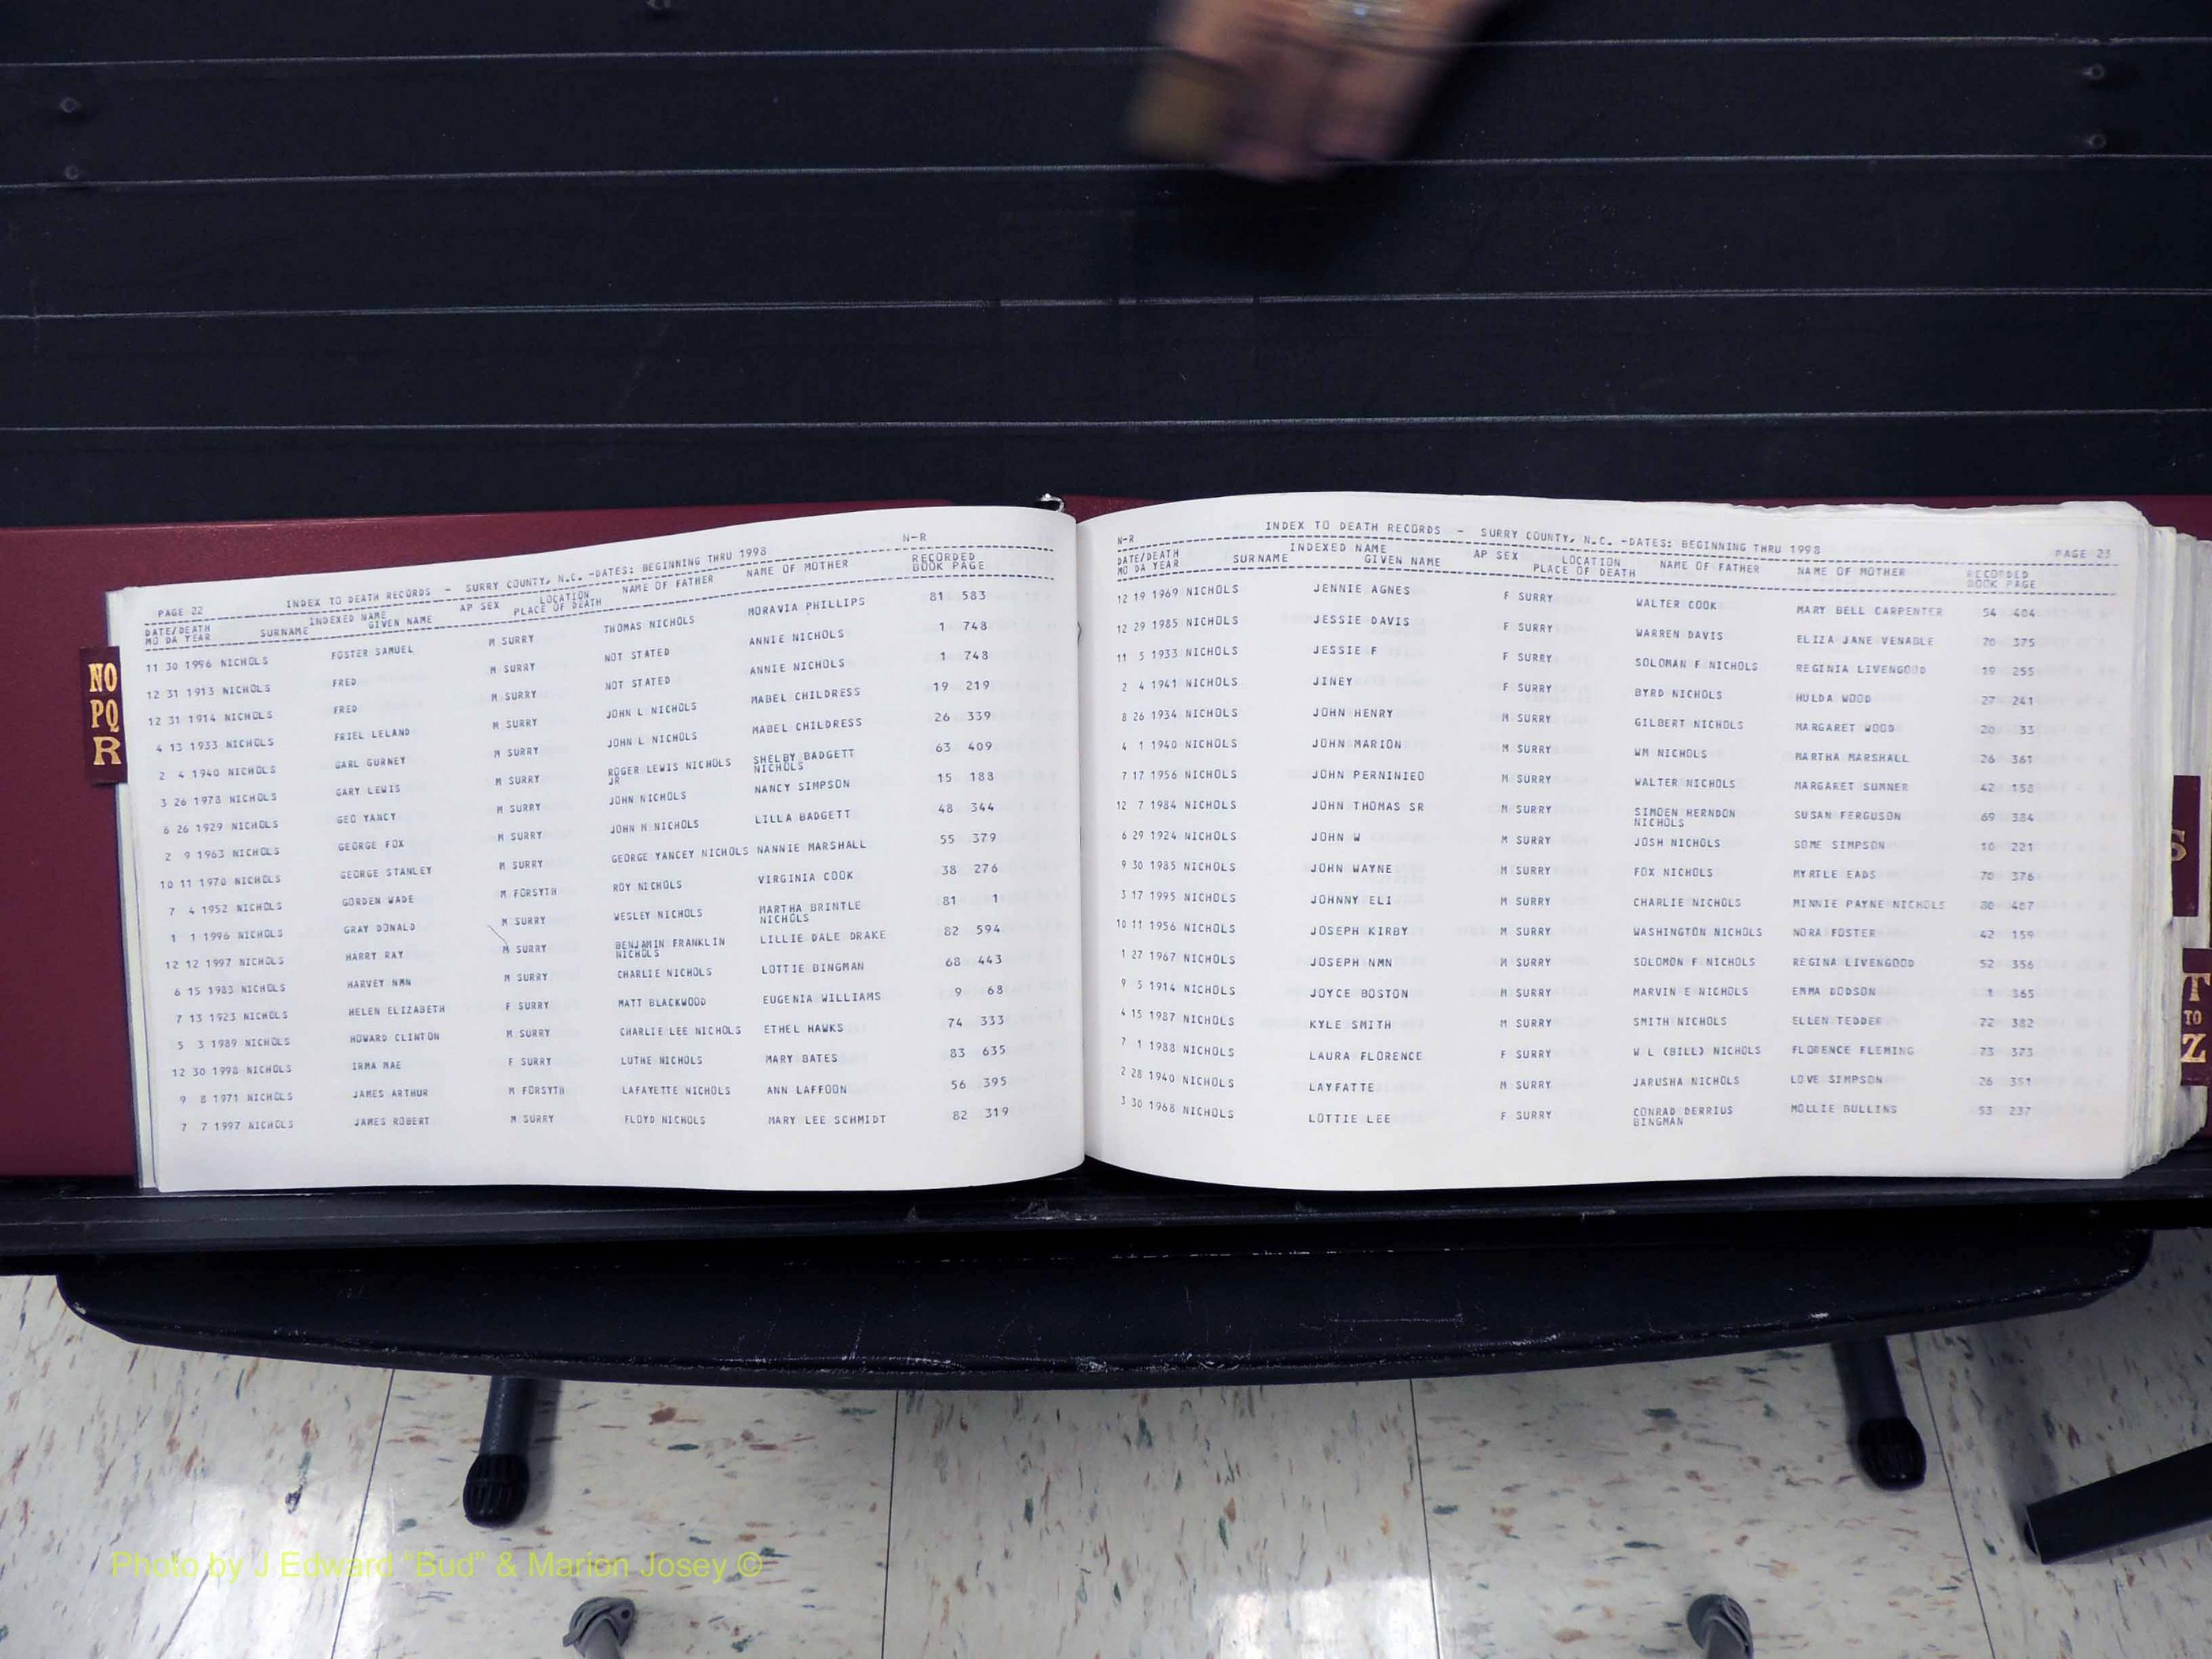 PAGE 22 INDEX TO DEATH RECORDS - SURRY COUNTY, N.C. -DATES: BEGINNING THRU 1998 N-R
DATE/DEATH INDEXED NAME AP SEX LOCATION NAME OF FATHER NAME OF MOTHER RECORDED
MO DA YEAR SURNAME GIVEN NAME PLACE OF DEATH BOOK PAGE
11 30 1996 NICHOLS FOSTER SAMUEL M SURRY THOMAS NICHOLS MORAVIA PHILLIPS 81 583
12 31 1913 NICHOLS FRED M SURRY NOT STATED ANNIE NICHOLS 1 748
12 31 1914 NICHOLS FRED M SURRY NOT STATED ANNIE NICHOLS 1 748
4 13 1933 NICHOLS FRIEL LELAND M SURRY JOHN L NICHOLS MABEL CHILDRESS 19 219
2 4 1940 NICHOLS GARL GURNEY M SURRY JOHN L NICHOLS MABEL CHILDRESS 26 339
3 26 1978 NICHOLS GARY LEWIS M SURRY ROGER LEWIS NICHOLS SHELBY BADGETT 63 409
JR NICHOLS
6 26 1929 NICHOLS GEO YANCY M SURRY JOHN NICHOLS NANCY SIMPSON 15 188
2 9 1963 NICHOLS GEORGE FOX M SURRY JOHN M NICHOLS LILLA BADGETT 48 344
10 11 1970 NICHOLS GEORGE STANLEY M SURRY GEORGE YANCEY NICHOLS NANNIE MARSHALL 55 379
7 4 1952 NICHOLS GORDEN WADE M FORSYTH ROY NICHOLS VIRGINIA COOK 38 276
1 1 1996 NICHOLS GRAY DONALD M SURRY WESLEY NICHOLS MARTHA BRINTLE 81 1
NICHOLS
12 12 1997 NICHOLS HARRY RAY M SURRY BENJAMIN FRANKLIN LILLIE DALE DRAKE 82 594
NICHOLS
6 15 1983 NICHOLS HARVEY NMN M SURRY CHARLIE NICHOLS LOTTIE BINGMAN 68 443
7 13 1923 NICHOLS HELEN ELIZABETH F SURRY MATT BLACKWOOD EUGENIA WILLIAMS 9 68
5 3 1989 NICHOLS HOWARD CLINTON M SURRY CHARLIE LEE NICHOLS ETHEL HAWKS 74 333
12 30 1998 NICHOLS IRMA MAE F SURRY LUTHE NICHOLS MARY BATES 83 635
9 8 1971 NICHOLS JAMES ARTHUR M FORSYTH LAFAYETTE NICHOLS ANN LAFFOON 56 395
7 7 1997 NICHOLS JAMES ROBERT M SURRY FLOYD NICHOLS MARY LEE SCHMIDT 82 319
N-R INDEX TO DEATH RECORDS - SURRY COUNTY, N.C. -DATES: BEGINNING THRU 1998 PAGE 23
DATE/DEATH INDEXED NAME AP SEX LOCATION NAME OF FATHER NAME OF MOTHER RECORDED
MO DA YEAR SURNAME GIVEN NAME PLACE OF DEATH BOOK PAGE
12 19 1969 NICHOLS JENNIE AGNES F SURRY WALTER COOK MARY BELL CARPENTER 54 404
12 29 1985 NICHOLS JESSIE DAVIS F SURRY WARREN DAVIS ELIZA JANE VENABLE 70 375
11 5 1933 NICHOLS JESSIE F F SURRY SOLOMAN F NICHOLS REGINIA LIVENGOOD 19 255
2 4 1941 NICHOLS JINEY F SURRY BYRD NICHOLS HULDA WOOD 27 241
8 26 1934 NICHOLS JOHN HENRY M SURRY GILBERT NICHOLS MARGARET WOOD 20 33
4 1 1940 NICHOLS JOHN MARION M SURRY WM NICHOLS MARTHA MARSHALL 26 361
7 17 1956 NICHOLS JOHN PERNINIEO M SURRY WALTER NICHOLS MARGARET SUMNER 42 158
12 7 1984 NICHOLS JOHN THOMAS SR M SURRY SIMOEN HERNDON SUSAN FERGUSON 69 384
NICHOLS
6 29 1924 NICHOLS JOHN W M SURRY JOSH NICHOLS SOME SIMPSON 10 221
9 30 1985 NICHOLS JOHN WAYNE M SURRY FOX NICHOLS MYRTLE EADS 70 376
3 17 1995 NICHOLS JOHNNY ELI M SURRY CHARLIE NICHOLS MINNIE PAYNE NICHOLS 80 467
10 11 1956 NICHOLS JOSEPH KIRBY M SURRY WASHINGTON NICHOLS NORA FOSTER 42 159
1 27 1967 NICHOLS JOSEPH NMN M SURRY SOLOMON F NICHOLS REGINA LIVENGOOD 52 356
9 5 1914 NICHOLS JOYCE BOSTON M SURRY MARVIN E NICHOLS EMMA DODSON 1 365
4 15 1987 NICHOLS KYLE SMITH M SURRY SMITH NICHOLS ELLEN TEDDER 72 382
7 1 1988 NICHOLS LAURA FLORENCE F SURRY W L (BILL) NICHOLS FLORENCE FLEMING 73 373
2 28 1940 NICHOLS LAYFATTE M SURRY JARUSHA NICHOLS LOVE SIMPSON 26 351
3 30 1968 NICHOLS LOTTIE LEE F SURRY CONRAD DERRIUS MOLLIE BULLINS 53 237
BINGMAN
NO
PQ
R
S
T
TO
Z
Photo by J Edward "Bud" & Marion Josey ©